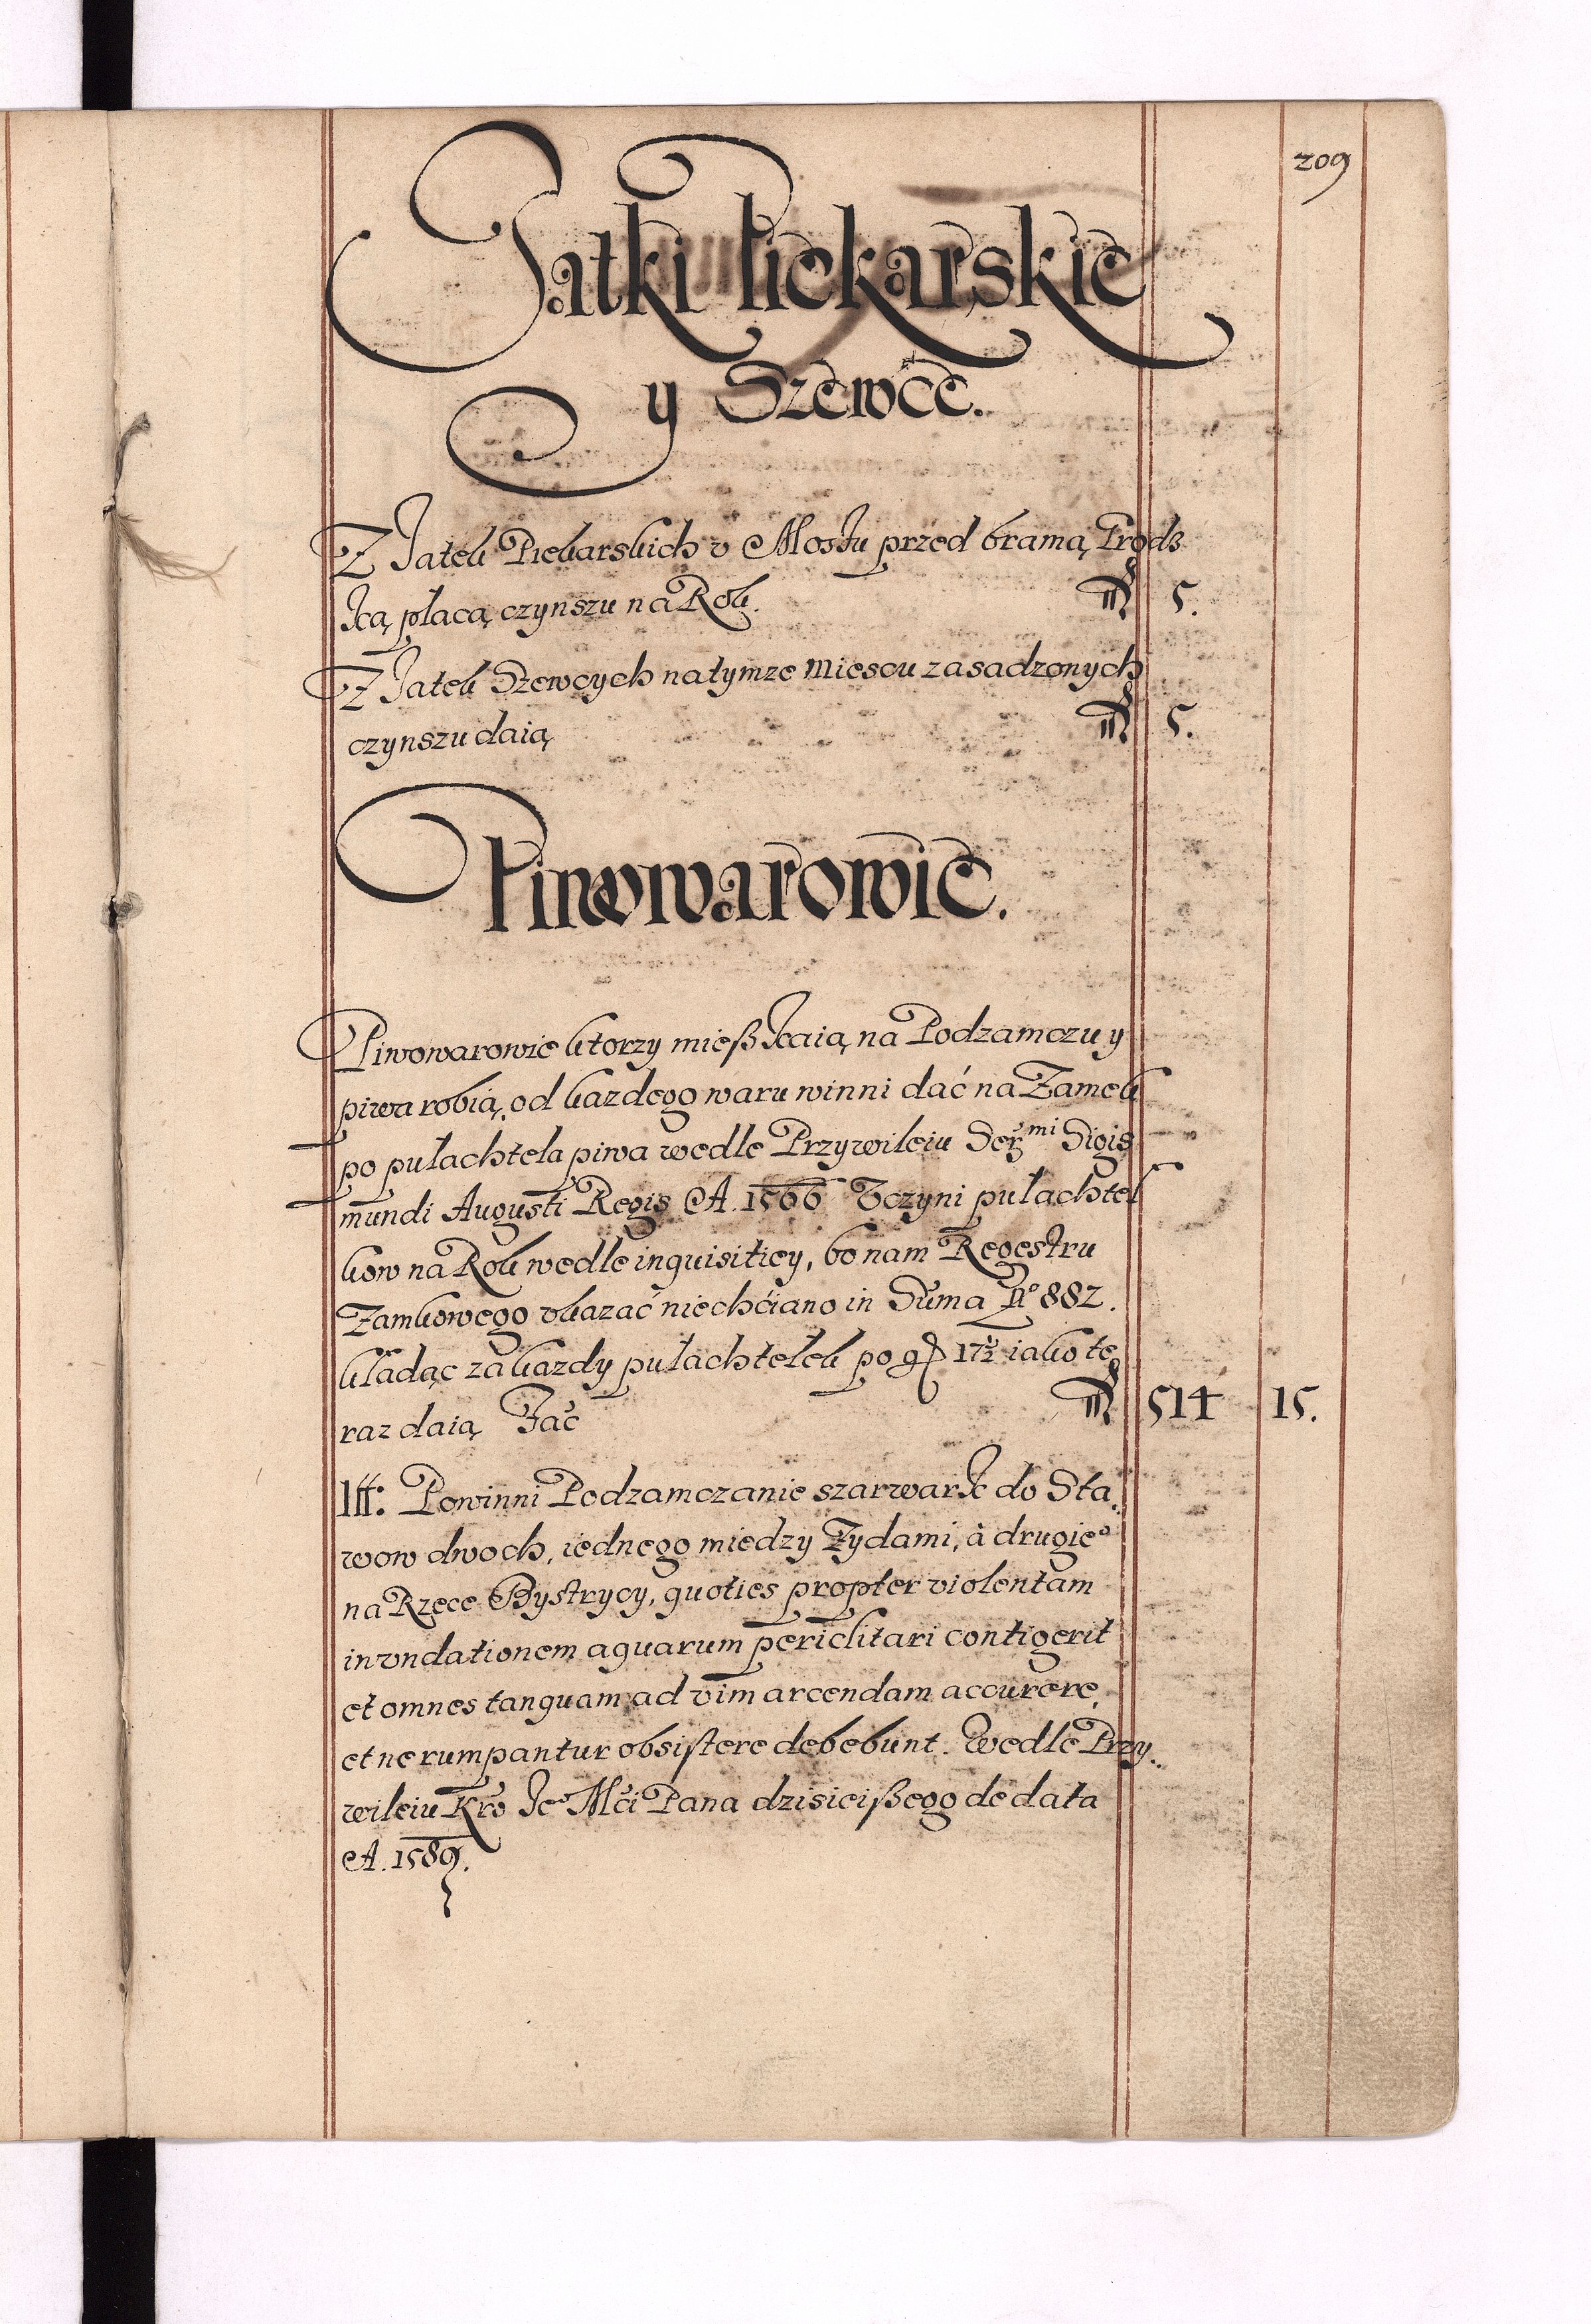 209
Jatki Piekarskie
y Szewce.
Z Jatek Piekarskich v Mostu przed bramą Grodz
ką płacą czynszu na Rok. 5.
Z Jatek Szewcych natymze miescu zasadzonych
czynszu daią 5.
Piwowarowie.
Piwowarowie ktorzy mießkaią na Podzamczu y
piwa robią, od kazdego waru winni dać na Zamek
po pułachtela piwa wedle Przywileiu Ser mi Sigis
mundi Augusti Regis A. 1566 Czyni pułachtel
kow na Rok wedle inquisitiey, bo nam Regestru
Zamkowego vkazać niechćiano in Suma No 882.
kładąc za kazdy pułachtelek po g 17½ iako te
raz daią Fac 514 15.
Itt: Powinni Podzamczanie szarwark do Sta
wow dwoch, iednego miedzy Zydami, à drugieo
na Rzece Bystrycy, quoties propter violentam
invndationem aquarum periclitari contigerit
et omnes tanquam ad vim arcendam accurere,
et ne rumpantur obsistere debebunt. Wedle Przy
wileiu Kro Jeo Mći Pana dzisieißego de data
A. 1589.